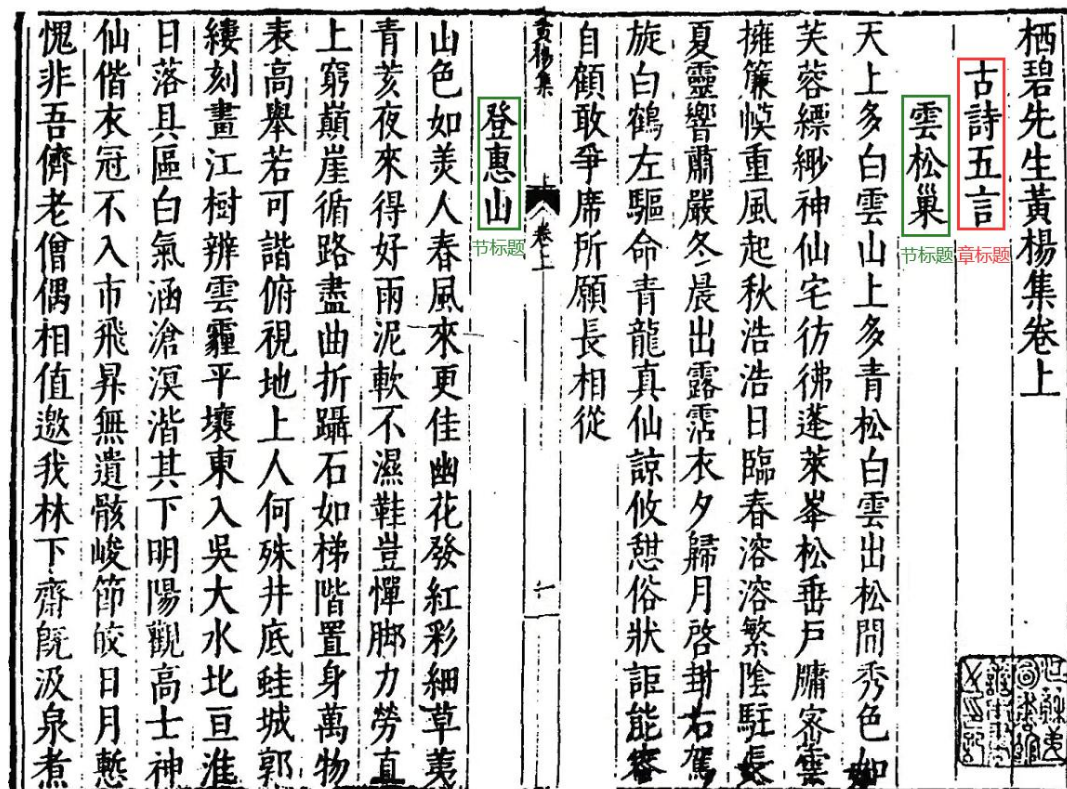 栖碧先生黃楊集卷上
古詩五言
章标题
雲松巢
节标题
天上多白雲山上多青松白雲出松間秀色如
芙蓉縹緲神仙宅彷彿蓬萊峯松垂戶牖密雲
擁簾幙重風起秋浩浩日臨春溶溶繁陰駐長
夏靈響肅嚴冬晨出露霑衣夕歸月啓封右駕
旋白鶴左驅命青龍真仙諒攸憇俗狀詎能容
自顧敢爭席所願長相從
黃楊集
上
卷上
一
登惠山
节标题
山色如美人春風來更佳幽花發紅彩細草荑
青荄夜來得好雨泥軟不濕鞋豈憚脚力勞直
上窮巔崖循路盡曲折躡石如梯階置身萬物
表高舉若可諧俯視地上人何殊井底蛙城郭
縷刻畫江樹辨雲霾平壤東入吳大水北亘淮
日落具區白氣涵滄溟湝其下明陽觀高士神
仙偕衣冠不入市飛昇無遺骸峻節皎日月慙
愧非吾儕老僧偶相值邀我林下齋旣汲泉煮